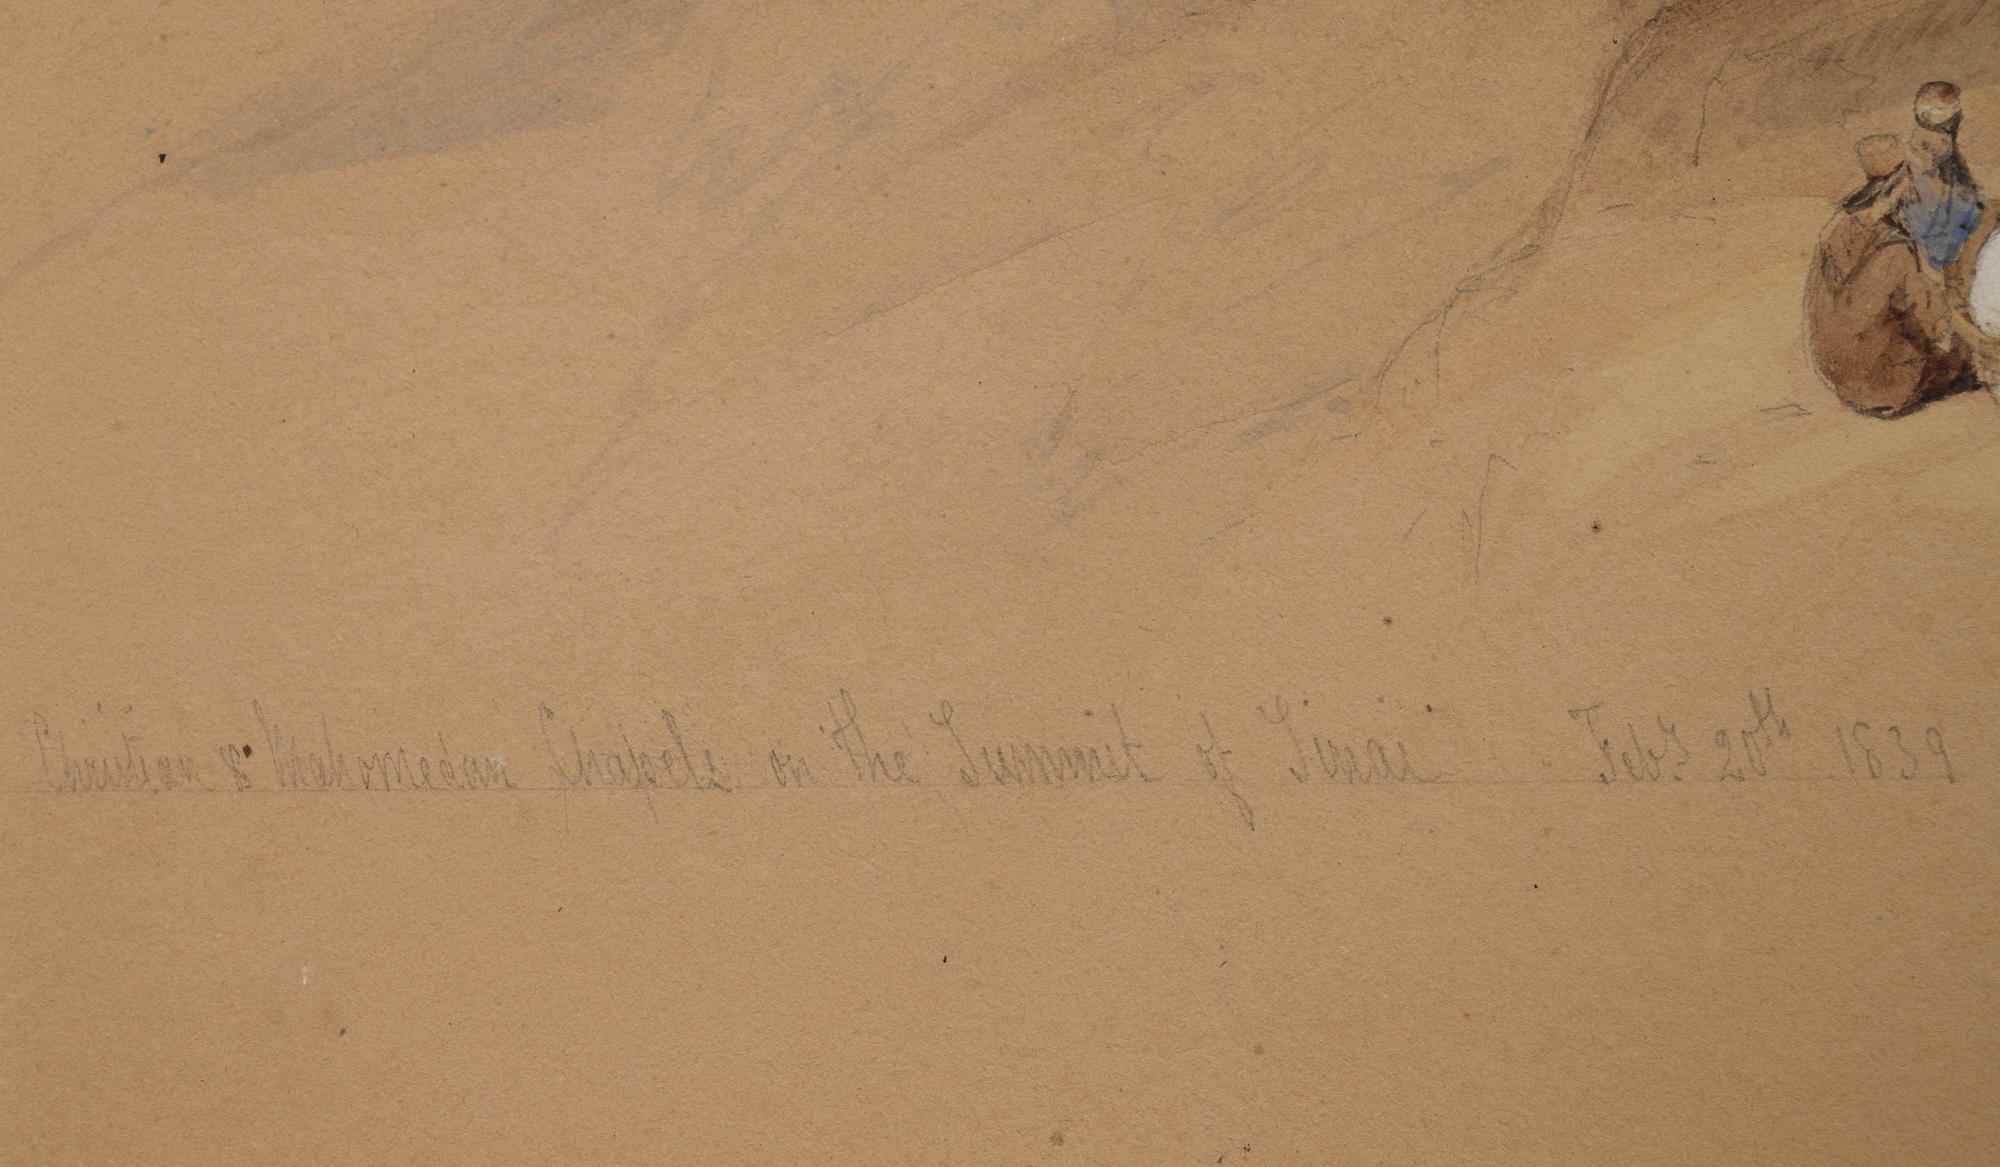 Christian & Mahomedan Chapels on the Summit of Sinai Feby 20th 1839